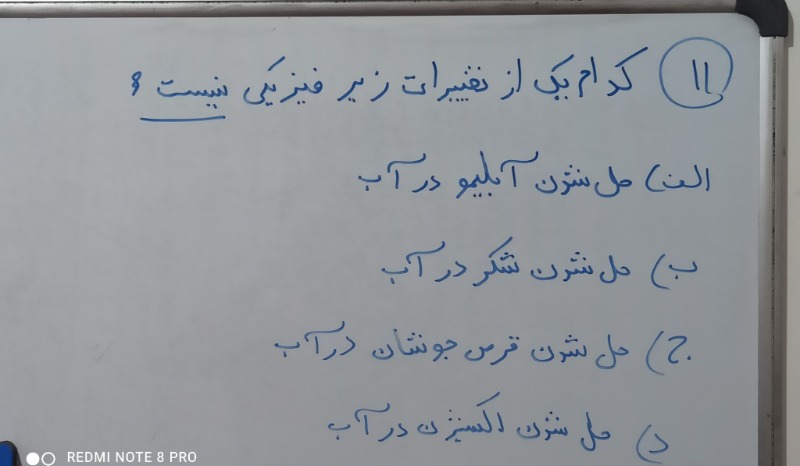 ۱۱) کدام یک از تغییرات زیر فیزیکی نیست ؟
الف) حل شدن آبلیمو در آب
ب) حل شدن شکر در آب
ج) حل شدن قرص جوشان در آب
د) حل شدن اکسیژن در آب
REDMI NOTE 8 PRO